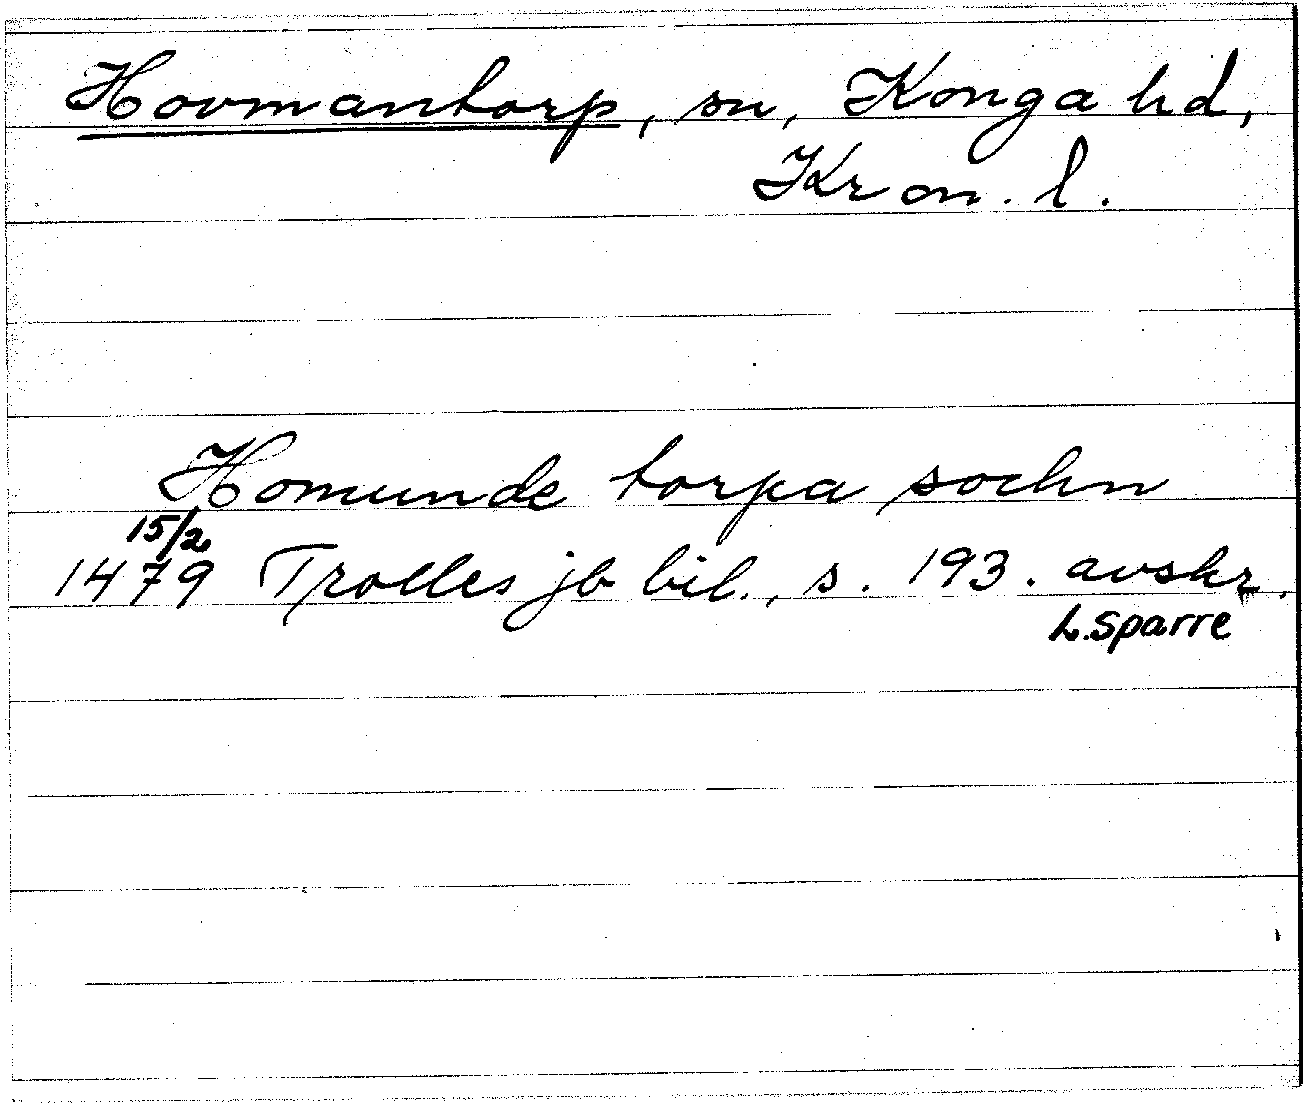 Hovmantorp, sn, Konga hd,
Kron. l.
Homunde torpa sochn
15/2
1479 Trolles jb bil., s. 193. avskr.
L. Sparre